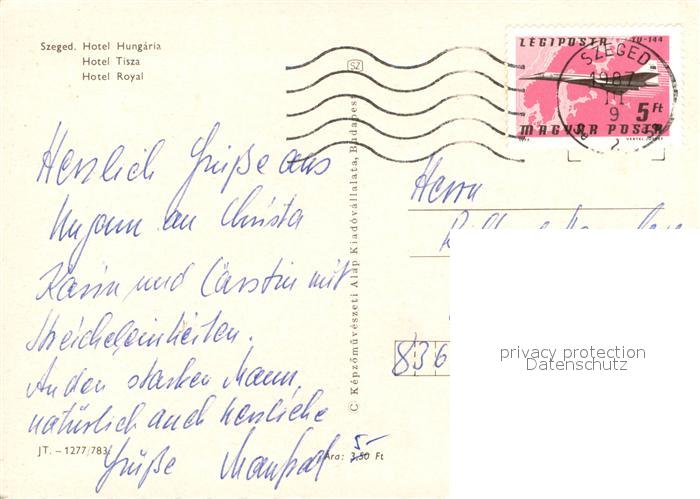 Szeged. Hotel Hungária
Hotel Tisza
Hotel Royal
SZ
LÉGIPOSTA TU-144
SZEGED
1987
III
9
2
5 Ft
MAGYAR POSTA
Herzlich Grüße aus
Ungarn an Christa
Karin und Carstin mit
Streicheleinheiten.
An den starken Mann,
natürlich auch herzliche
Grüße Manfred
JT. – 1277/783.
Ára: 3,50 Ft
5-
C Képzőművészeti Alap Kiadóvállalata, Budapest
Herrn
836
privacy protection
Datenschutz